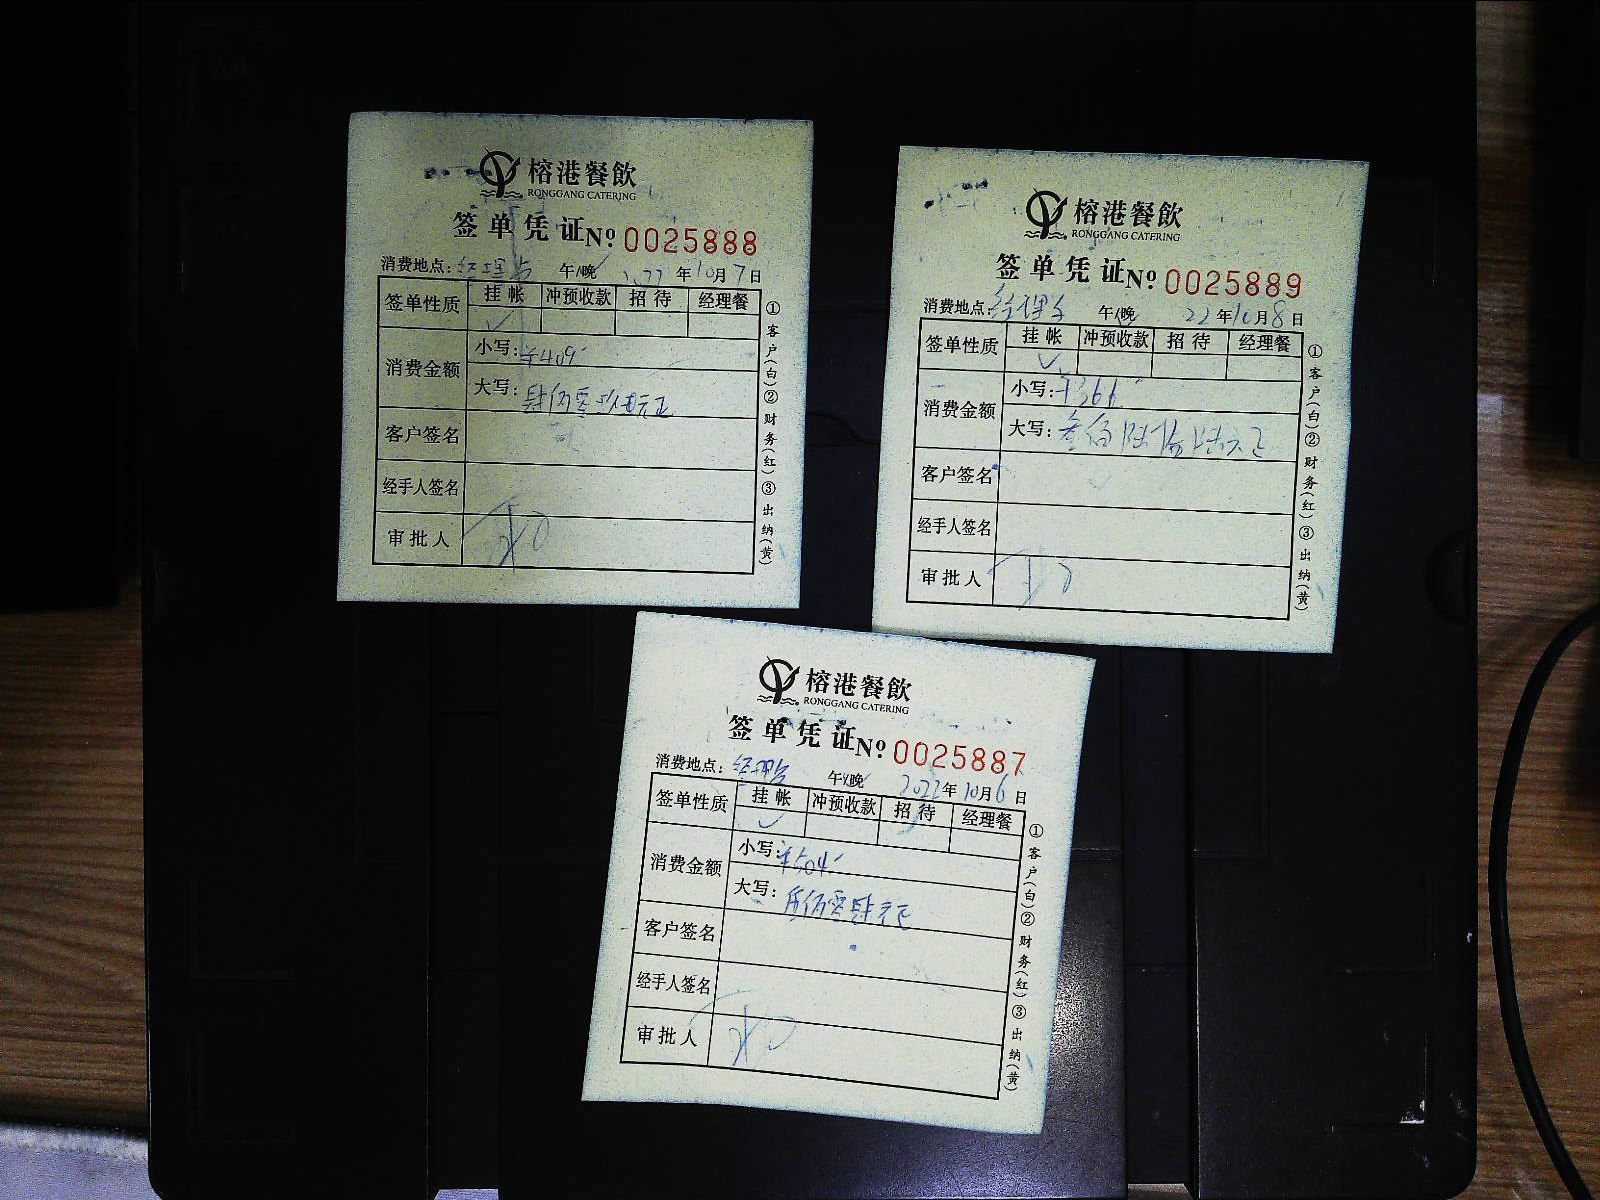 榕港餐飲
RONGGANG CATERING
签单凭证 Nº 0025888
消费地点: 午/晚 2022年10月7日
签单性质 挂帐 冲预收款 招待 经理餐
消费金额 小写: ¥409
大写: 肆佰零玖元正
客户签名
经手人签名
审批人
①客户(白)②财务(红)③出纳(黄)
榕港餐飲
RONGGANG CATERING
签单凭证 Nº 0025889
消费地点: 午/晚 22年10月8日
签单性质 挂帐 冲预收款 招待 经理餐
消费金额 小写: ¥366
大写: 叁佰陆拾陆元正
客户签名
经手人签名
审批人
①客户(白)②财务(红)③出纳(黄)
榕港餐飲
RONGGANG CATERING
签单凭证 Nº 0025887
消费地点: 午/晚 2022年10月6日
签单性质 挂帐 冲预收款 招待 经理餐
消费金额 小写: ¥504
大写: 伍佰零肆元正
客户签名
经手人签名
审批人
①客户(白)②财务(红)③出纳(黄)